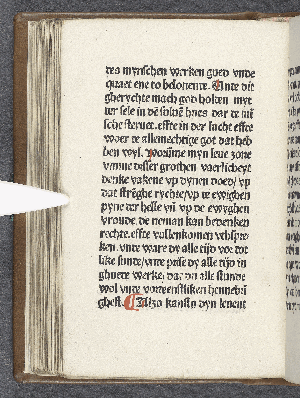 des mynschen werken goed vnde
quaet ene to belonene. Unde dit
gherychte mach god holden myt
der sele in dē sulue hues dar de mī
sche steruet. effte in der lucht effte
woer de allemechtige got dat heb
ben wyl. Worūme myn leue zone
vmme desser groten vaerlicheyt
denke vakene vp dynen doed/ vp
dat strēghe rychte/vp de ewighen
pyne der helle vn vp de ewyghen
vroude. de neman kan bedenken
rechte. effte vollenkomen vthspre
ken. vnde ware dy alle tijd vor dot
like sunde/vnde pyne dy alle tijd in
ghuder werke. dar du alle stunde
wol vnde
ghest. Also kanstu dyn leuent